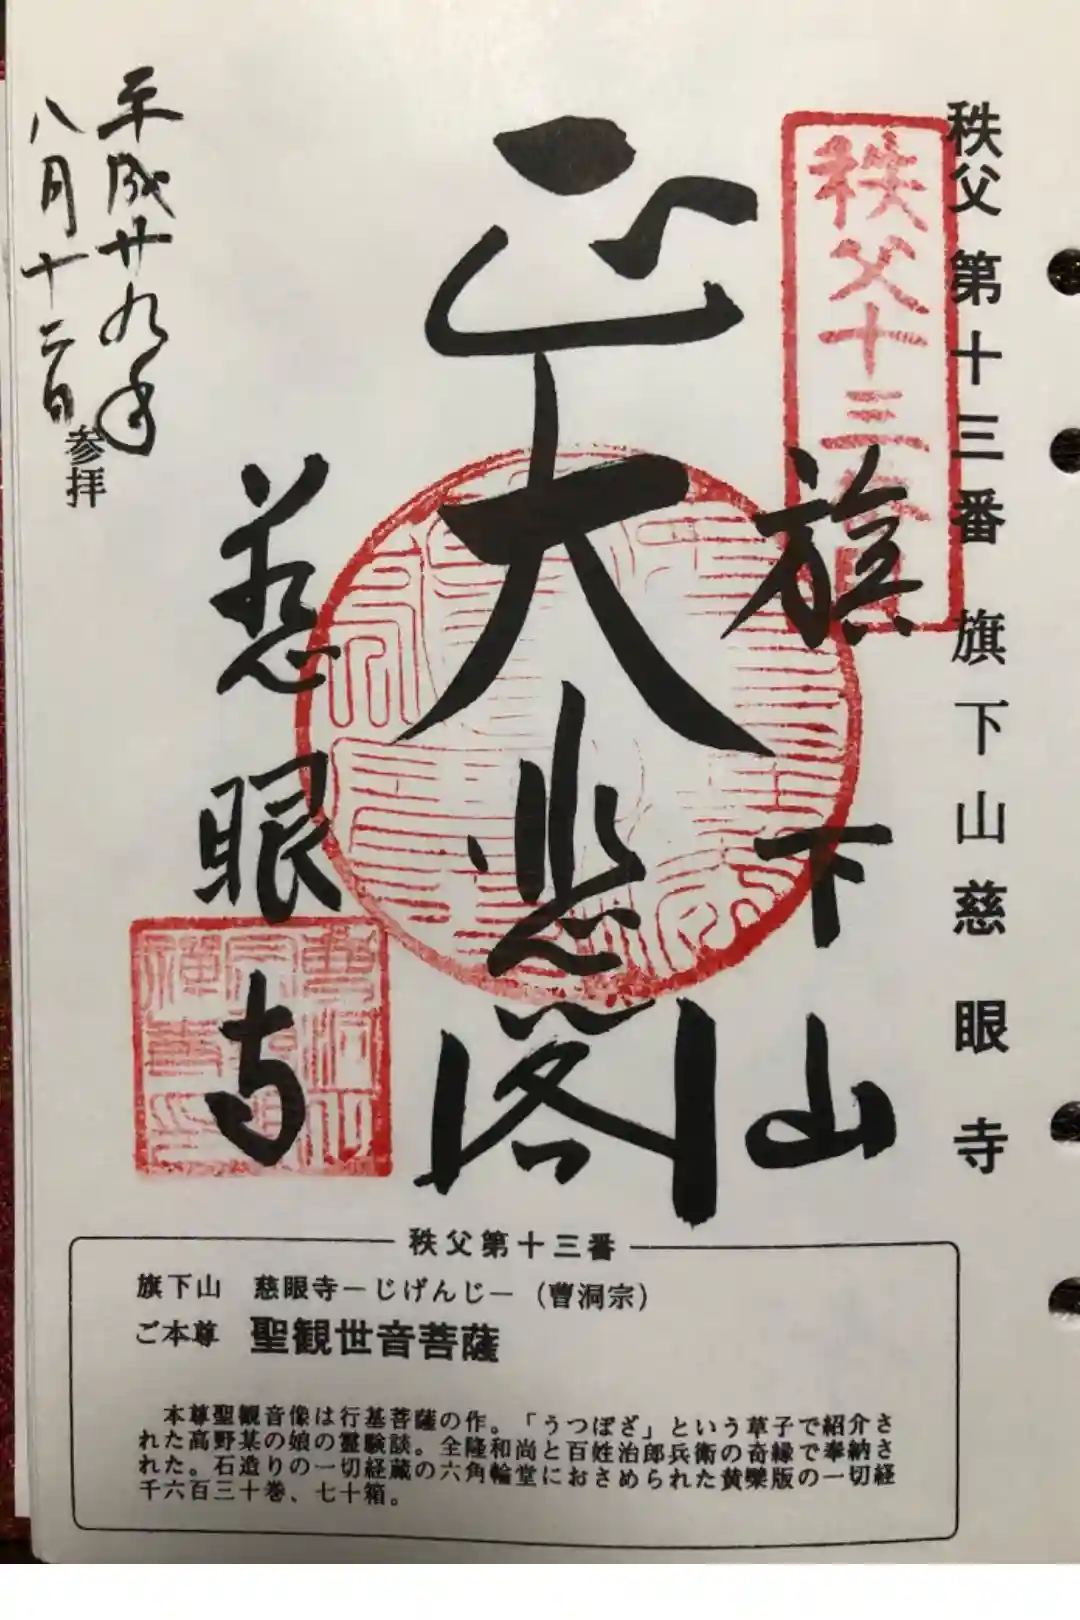 秩父第十三番 旗下山慈眼寺
秩父十三番
旗下山
正大悲閣
慈眼寺
平成廿九年
八月十二日
参拝
秩父第十三番
旗下山 慈眼寺－じげんじ－（曹洞宗）
ご本尊 聖観世音菩薩
本尊聖観音像は行基菩薩の作。「うつぼざ」という草子で紹介さ
れた高野某の娘の霊験談。全隆和尚と百姓治郎兵衛の奇縁で奉納さ
れた。石造りの一切経蔵の六角輪堂におさめられた黄檗版の一切経
千六百三十巻、七十箱。